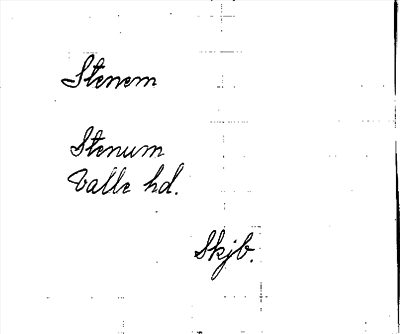 Stenem
Stenum
Valle hd.
Skjb.